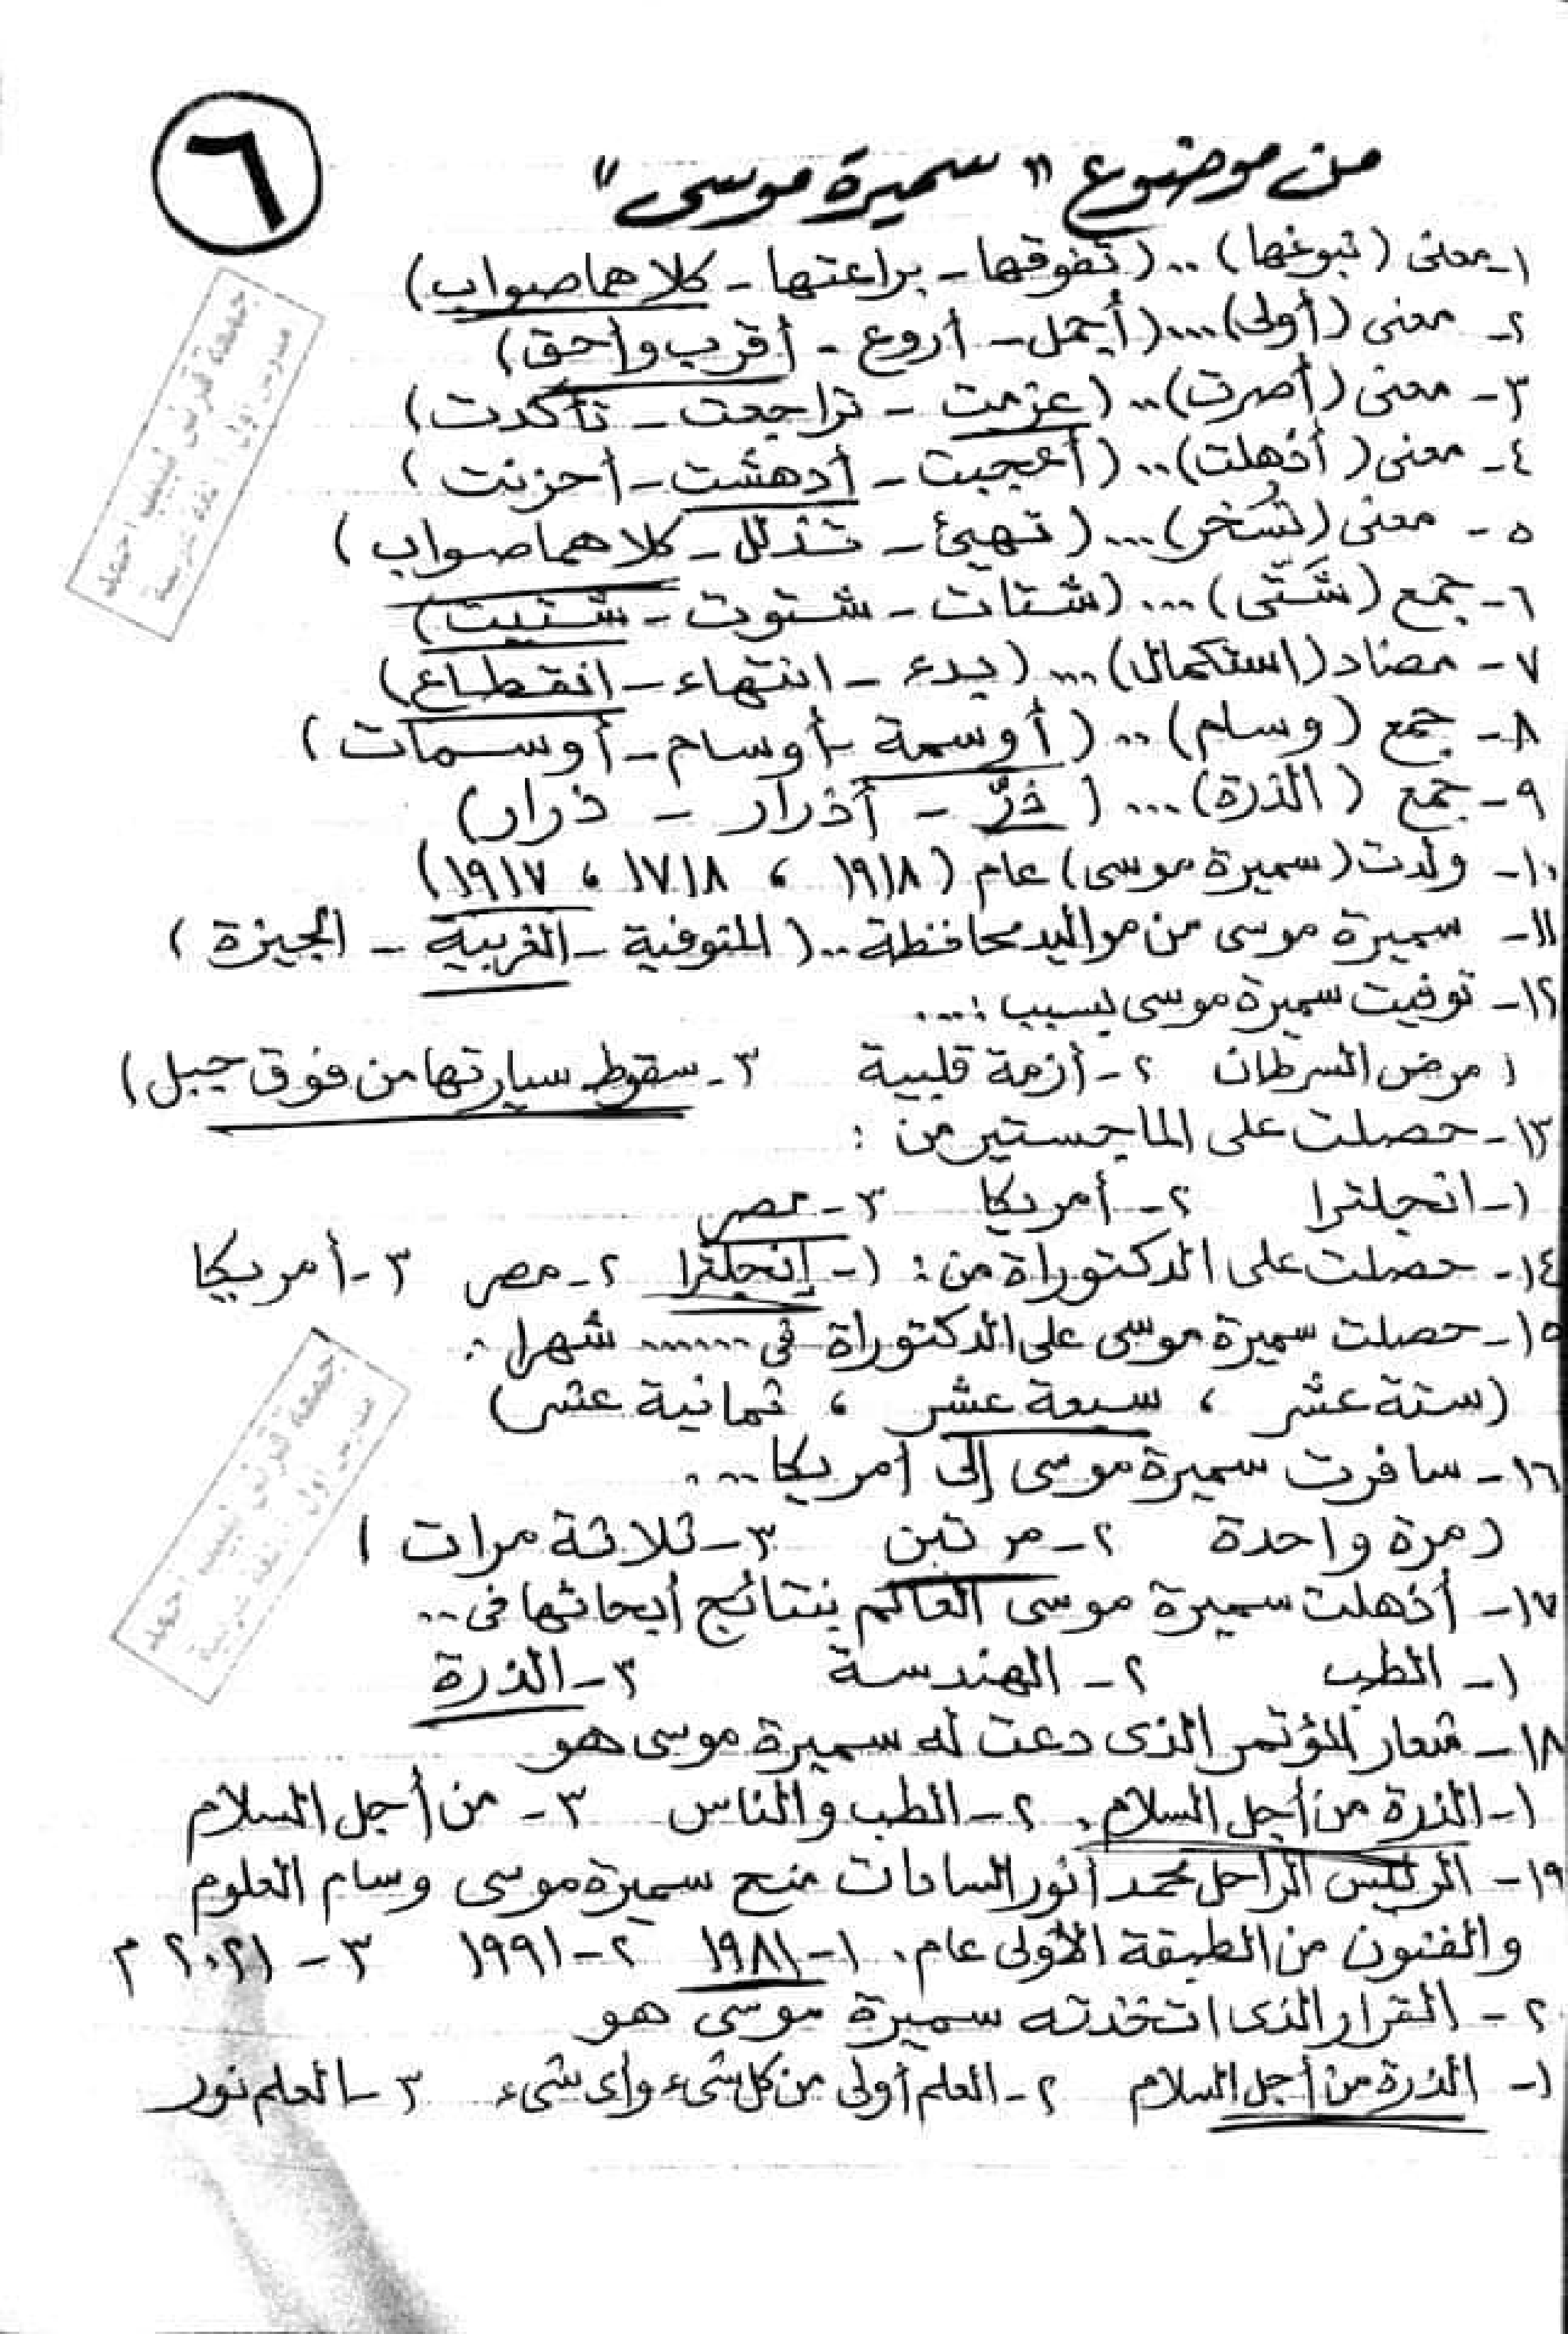 ٦
من موضوع "سميرة موسى"
١- معنى (نبوغها) .. (تفوقها - براعتها - كلاهما صواب)
٢- معنى (أولى) .... (أجمل - أروع - أقرب وأحق)
٣- معنى (أصرت) .. (عزمت - تراجعت - تأكدت)
٤- معنى (أذهلت) .. (أعجبت - أدهشت - أحزنت)
٥- معنى (تُسَخر) ... (تهيئ - تذلل - كلاهما صواب)
٦- جمع (شَتّى) ... (شتات - شتوت - شتيت)
٧- مضاد (استكمال) ... (بدء - انتهاء - انقطاع)
٨- جمع (وسام) .. (أوسمة - أوسام - أوسمات)
٩- جمع (الذرة) ... (ذرّ - أذرار - ذرار)
١٠- ولدت (سميرة موسى) عام (١٩١٨ ، ١٧١٨ ، ١٩١٧)
١١- سميرة موسى من مواليد محافظة .. (المنوفية - الغربية - الجيزة)
١٢- توفيت سميرة موسى بسبب : ....
١ مرض السرطان ٢- أزمة قلبية ٣- سقوط سيارتها من فوق جبل)
١٣- حصلت على الماجستير من :
١- انجلترا ٢- أمريكا ٣- مصر
١٤- حصلت على الدكتوراة من : ١- إنجلترا ٢- مصر ٣- أمريكا
١٥- حصلت سميرة موسى على الدكتوراة فى ....... شهرا :
(ستة عشر ، سبعة عشر ، ثمانية عشر)
١٦- سافرت سميرة موسى إلى امريكا ....
(مرة واحدة ٢- مرتين ٣- ثلاثة مرات)
١٧- أذهلت سميرة موسى العالم بنتائج أبحاثها فى ..
١- الطب ٢- الهندسة ٣- الذرة
١٨- شعار المؤتمر الذى دعت له سميرة موسى هو
١- الذرة من أجل السلام. ٢- الطب والناس ٣- من أجل السلام
١٩- الرئيس الراحل محمد أنور السادات منح سميرة موسى وسام العلوم
والفنون من الطبقة الأولى عام. ١- ١٩٨١ ٢- ١٩٩١ ٣- ٢٠٢١ م
٢٠- القرار الذى اتخذته سميرة موسى هو
١- الذرة من أجل السلام ٢- العلم أولى من كل شىء وأى شىء ٣- العلم نور